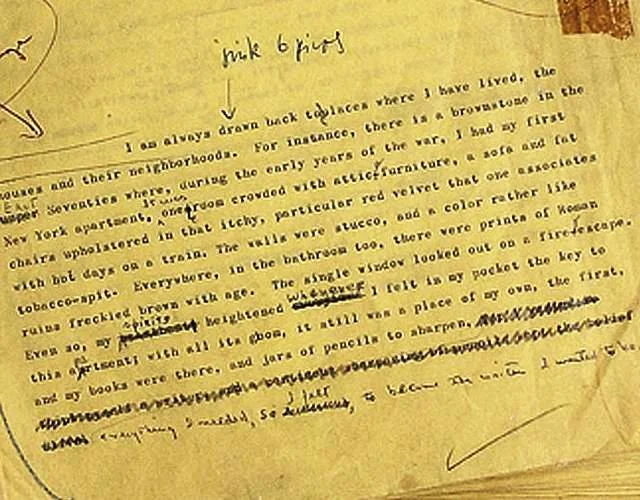 I am always drawn back to places where I have lived, the
houses and their neighborhoods. For instance, there is a brownstone in the
East
upper Seventies where, during the early years of the war, I had my first
it was
New York apartment, one room crowded with attic furniture, a sofa and fat
chairs upholstered in that itchy, particular red velvet that one associates
with hot days on a train. The walls were stucco, and a color rather like
tobacco-spit. Everywhere, in the bathroom too, there were prints of Roman
ruins freckled brown with age. The single window looked out on a fire-escape.
spirits whenever
Even so, my heightened I felt in my pocket the key to
this apartment; with all its gloom, it still was a place of my own, the first,
and my books were there, and jars of pencils to sharpen,
I felt
everything I needed, so to become the writer I wanted to be.